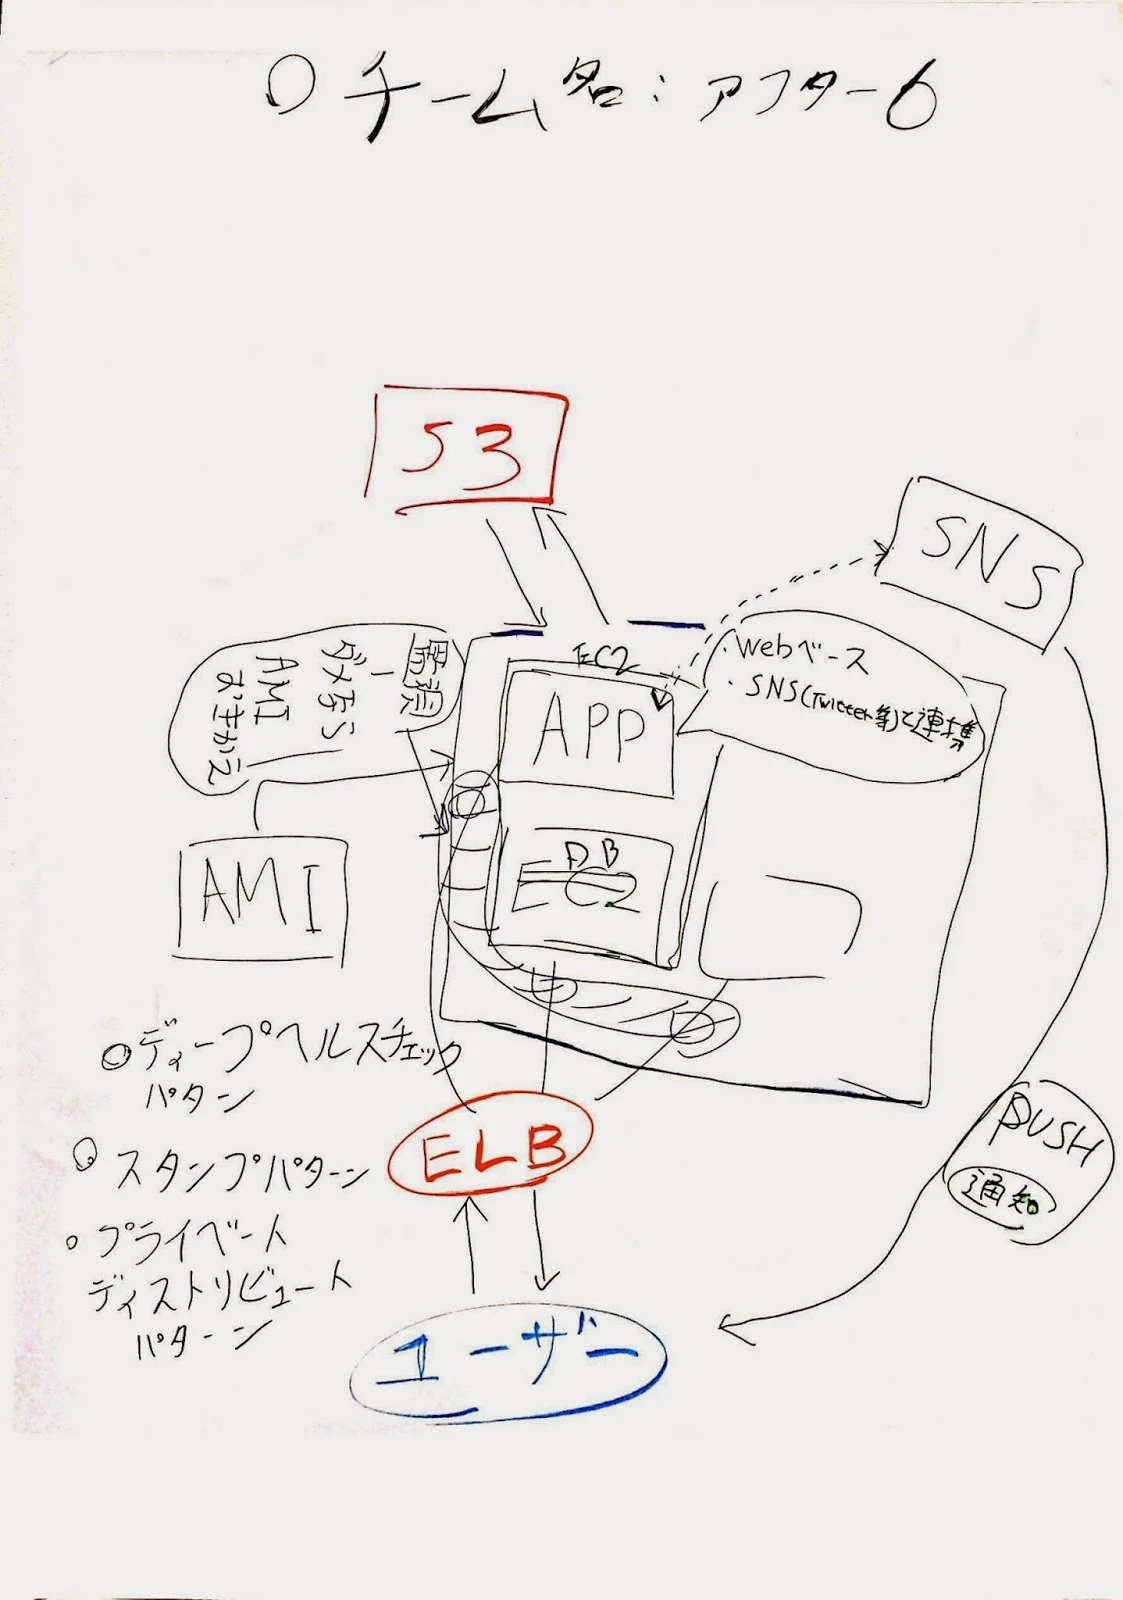 ○チーム名：アフター6
S3
SNS
EC2
APP
・Webベース
・SNS(Twitter等)と連携
監視
ダメなら
AMI
おきかえ
AMI
DB
○ディープヘルスチェック
パタン
○スタンプパターン
○プライベート
ディストリビュート
パターン
ELB
PUSH
通知
ユーザー